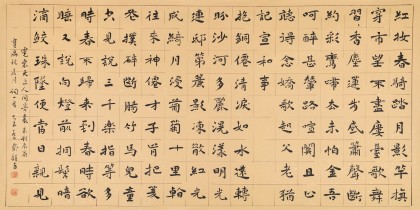 紅妝春騎踏月影竿旗
穿市望不盡樓臺歌舞
習習香塵蓮步底簫聲斷
約彩鸞歸去未怕金吾
呵醉甚輦路喧闐且止
聽得念奴歌起父老猶
記宣和事
抱銅仙清淚如水還轉
盼沙河多麗滉漾明光
連邸第簾影凍散紅光
成綺月浸葡萄十里看
往來神仙才子肯把菱
花撲碎腸斷竹馬兒童
空見說三千樂指等多
時春不歸來到春時欲
睡又說向燈前擁髻暗
滴鮫珠墜便當日親見
霓裳天上人間夢裏